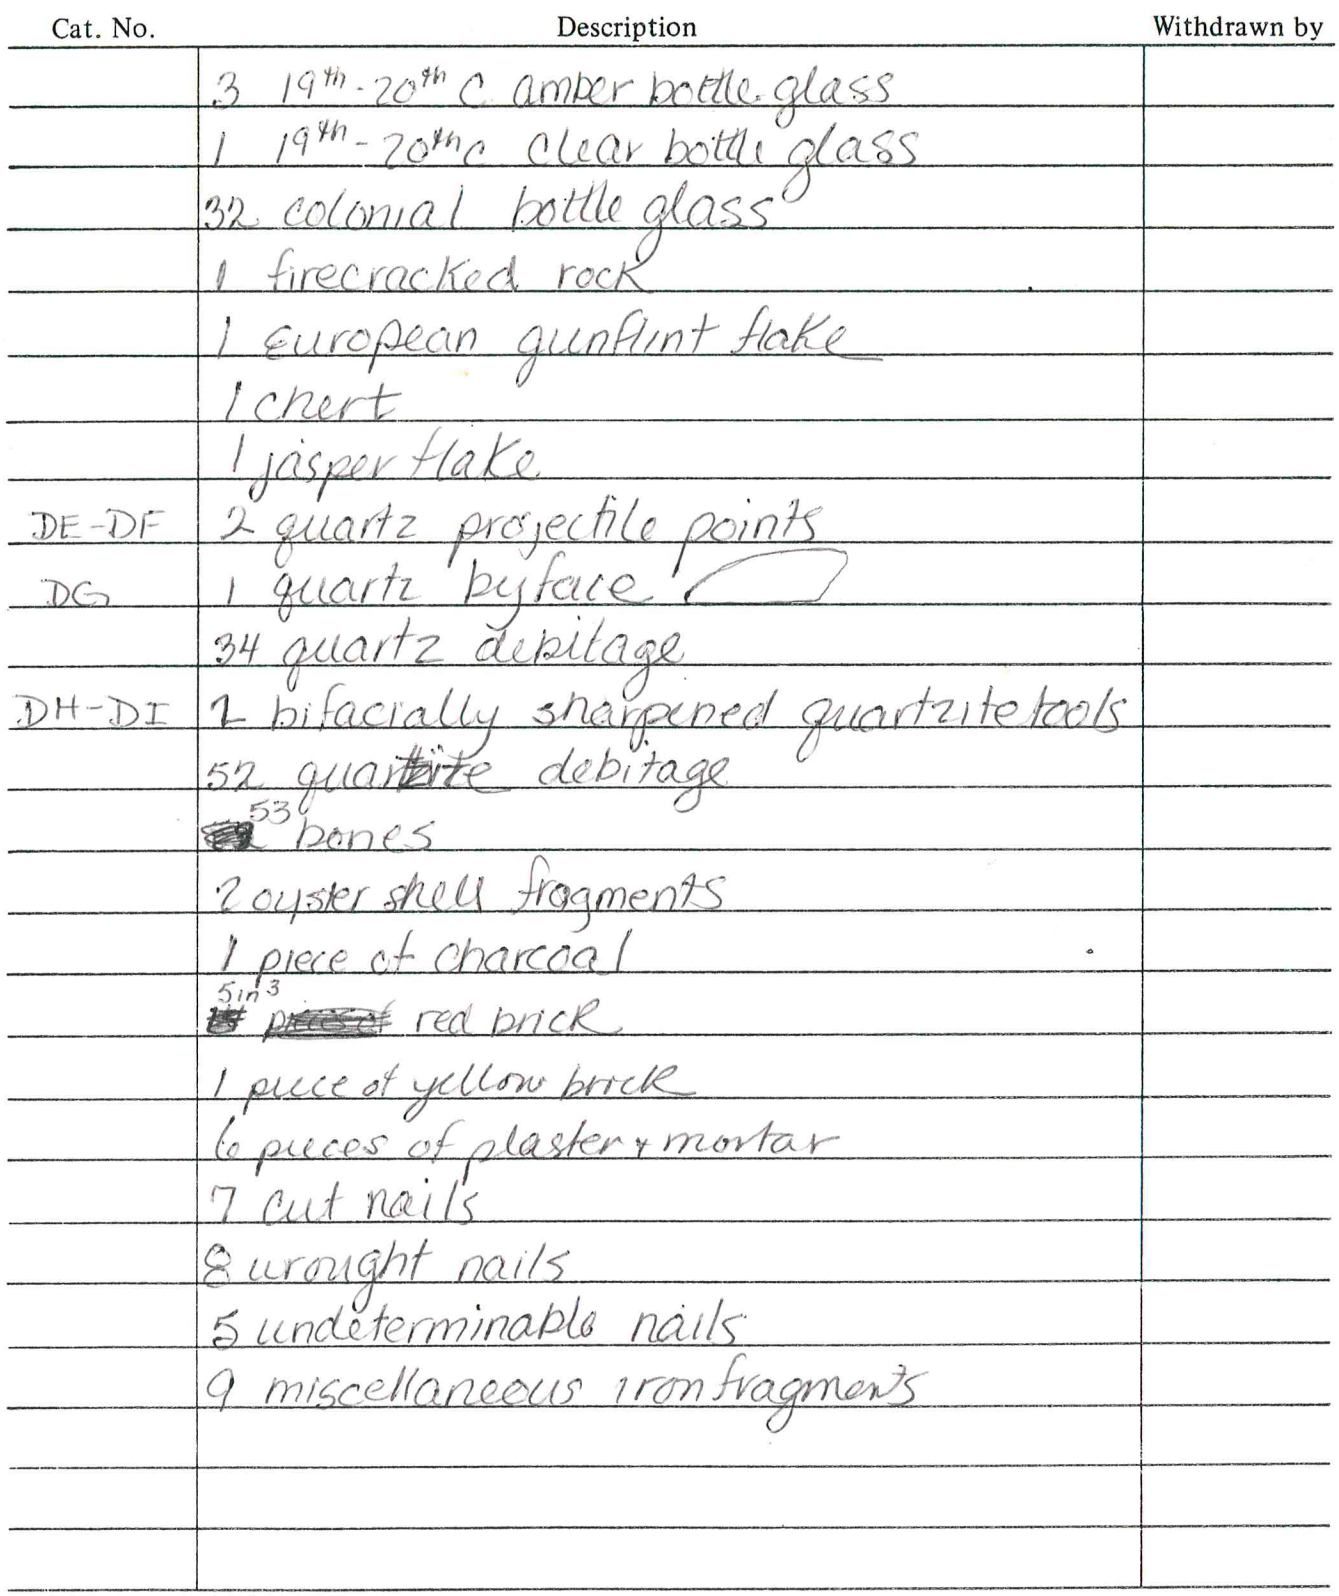 Cat. No. Description Withdrawn by
3 19th-20th C amber bottle glass
1 19th-20th C clear bottle glass
32 colonial bottle glass
1 firecracked rock
1 European gunflint flake
1 chert
1 jasper flake
DE-DF 2 quartz projectile points
DG 1 quartz byface
34 quartz debitage
DH-DI 2 bifacially sharpened quartzite tools
52 quartzite debitage
53 bones
2 oyster shell fragments
1 piece of charcoal
5in3 red brick
1 piece of yellow brick
6 pieces of plaster + mortar
7 cut nails
8 wrought nails
5 undeterminable nails
9 miscellaneous iron fragments